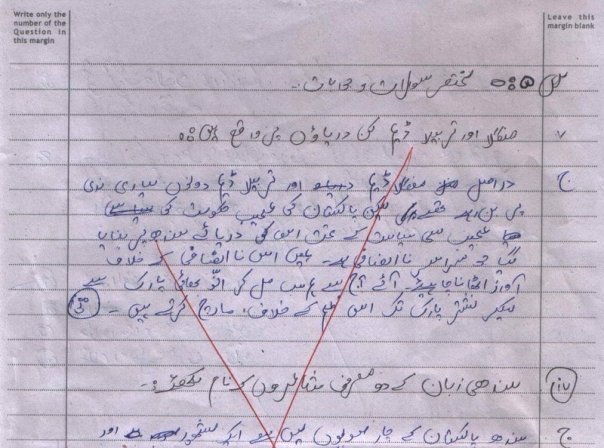 Write only the
number of the
Question in
this margin
Leave this
margin blank
مختصر سوالات و جوابات۔
v منگلا اور تربیلا ڈیم کن دریاؤں پر واقع ہیں
ج دراصل منگلا ڈیم اور تربیلا ڈیم دونوں ہماری ندی
پر بن رہے تھے لیکن پاکستان کی عجیب حکومت کی
عجیب سی سیاست کے تحت اس کو دریائے سندھ پر بنایا
گیا جو سراسر ناانصافی ہے۔ ہمیں اس ناانصافی کے خلاف
آواز اٹھانا چاہیئے۔ آئے آج ہم سب مل کر پارک سے
لیکر نشتر پارک تک اس ظلم کے خلاف مارچ کرتے ہیں۔
سندھی زبان کے دو معروف شاعروں کے نام لکھیئے:۔
ج۔ سندھ پاکستان کے چار صوبوں میں سے ایک مشہور اور